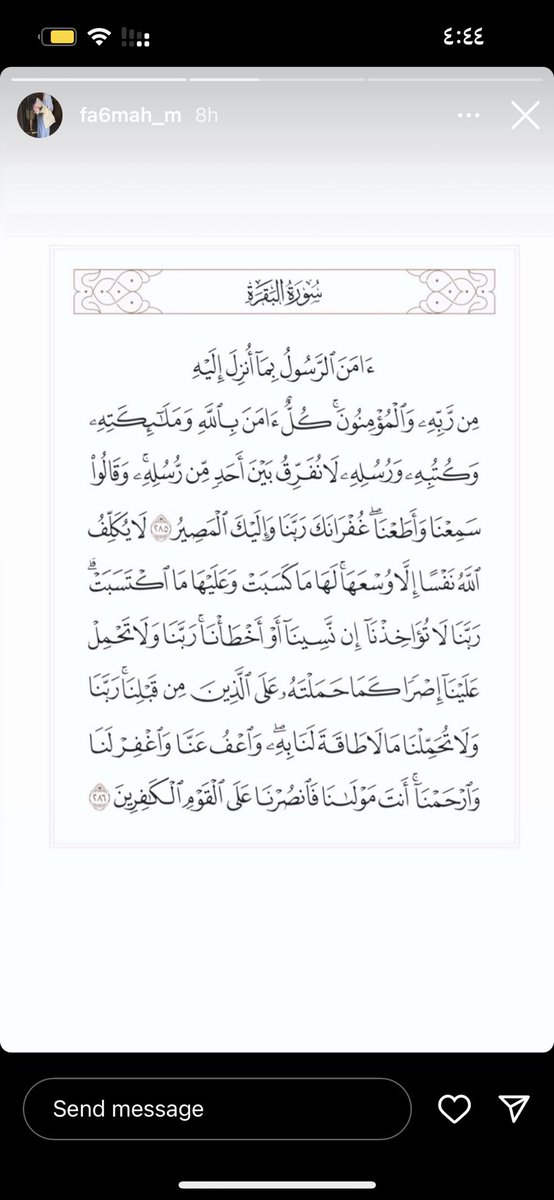 ٤:٤٤
fa6mah_m 8h
سُورَةُ البَقَرَةِ
ءَامَنَ ٱلرَّسُولُ بِمَآ أُنزِلَ إِلَيْهِ
مِن رَّبِّهِۦ وَٱلْمُؤْمِنُونَۚ كُلٌّ ءَامَنَ بِٱللَّهِ وَمَلَـٰٓئِكَتِهِۦ
وَكُتُبِهِۦ وَرُسُلِهِۦ لَا نُفَرِّقُ بَيْنَ أَحَدٍ مِّن رُّسُلِهِۦۚ وَقَالُوا۟
سَمِعْنَا وَأَطَعْنَاۖ غُفْرَانَكَ رَبَّنَا وَإِلَيْكَ ٱلْمَصِيرُ ٢٨٥ لَا يُكَلِّفُ
ٱللَّهُ نَفْسًا إِلَّا وُسْعَهَاۚ لَهَا مَا كَسَبَتْ وَعَلَيْهَا مَا ٱكْتَسَبَتْۗ
رَبَّنَا لَا تُؤَاخِذْنَآ إِن نَّسِينَآ أَوْ أَخْطَأْنَاۚ رَبَّنَا وَلَا تَحْمِلْ
عَلَيْنَآ إِصْرًا كَمَا حَمَلْتَهُۥ عَلَى ٱلَّذِينَ مِن قَبْلِنَاۚ رَبَّنَا
وَلَا تُحَمِّلْنَا مَا لَا طَاقَةَ لَنَا بِهِۦۖ وَٱعْفُ عَنَّا وَٱغْفِرْ لَنَا
وَٱرْحَمْنَآۚ أَنتَ مَوْلَىٰنَا فَٱنصُرْنَا عَلَى ٱلْقَوْمِ ٱلْكَـٰفِرِينَ ٢٨٦
Send message